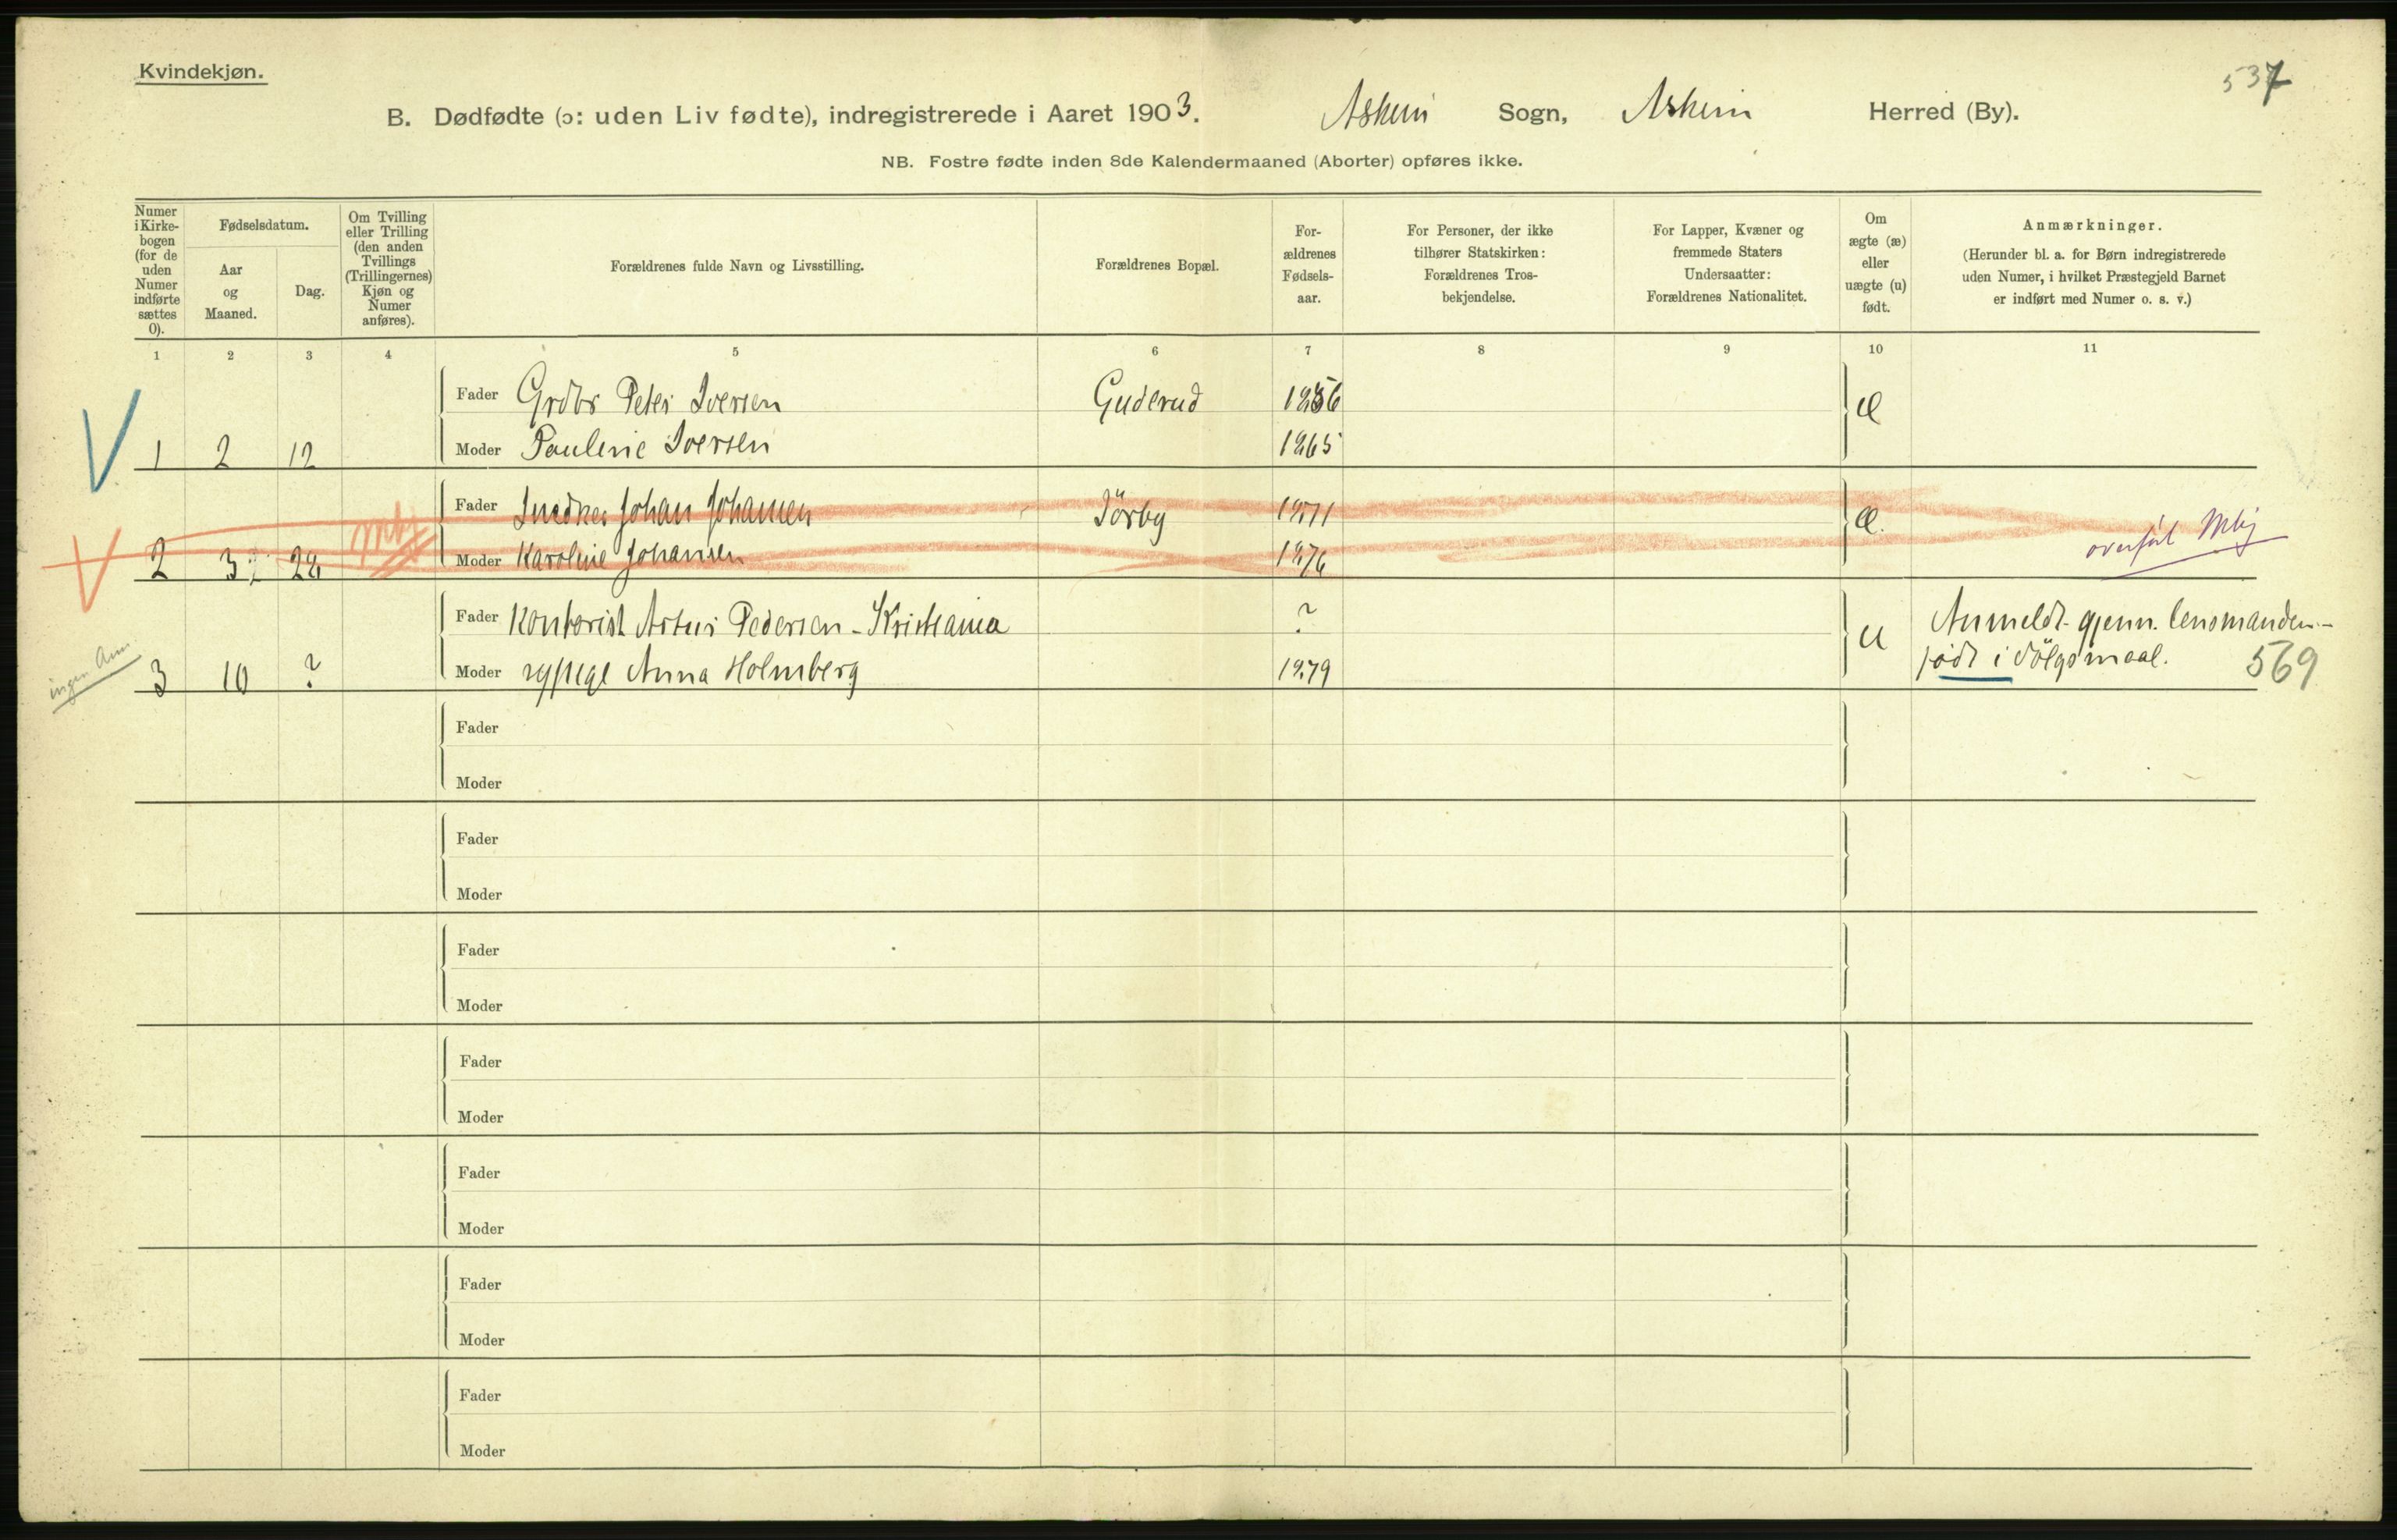 Kvindekjøn.
537
B. Dødfødte (ɔ: uden Liv fødte), indregistrerede i Aaret 1903. Askim Sogn, Askim Herred (By).
NB. Fostre fødte inden 8de Kalendermaaned (Aborter) opføres ikke.
Numer i Kirkebogen (for de uden Numer indførte sættes 0).
Fødselsdatum.
Aar og Maaned.
Dag.
Om Tvilling eller Trilling (den anden Tvillings (Trillingernes) Kjøn og Numer anføres).
Forældrenes fulde Navn og Livsstilling.
Forældrenes Bopæl.
For-
ældrenes
Fødsels-
aar.
For Personer, der ikke
tilhører Statskirken:
Forældrenes Tros-
bekjendelse.
For Lapper, Kvæner og
fremmede Staters
Undersaatter:
Forældrenes Nationalitet.
Om
ægte (æ)
eller
uægte (u)
født.
Anmærkninger.
(Herunder bl. a. for Børn indregistrerede
uden Numer, i hvilket Præstegjeld Barnet
er indført med Numer o. s. v.)
1 2 3 4 5 6 7 8 9 10 11
Fader Grdbr Peter Iversen Guderud 1856 æ
1 2 12 Moder Pauline Iversen 1865
Fader Snedker Johan Johansen Törby 1871 æ.
2 3 24 Moder Karoline Johansen 1876 overført Mkj
Fader Kontorist Artur Pedersen - Kristiania ? u Anmeldt gjenn. lensmanden -
ingen Anm 3 10 ? Moder sypige Anna Holmberg 1879 født i dölgsmaal. 569
Fader
Moder
Fader
Moder
Fader
Moder
Fader
Moder
Fader
Moder
Fader
Moder
Fader
Moder